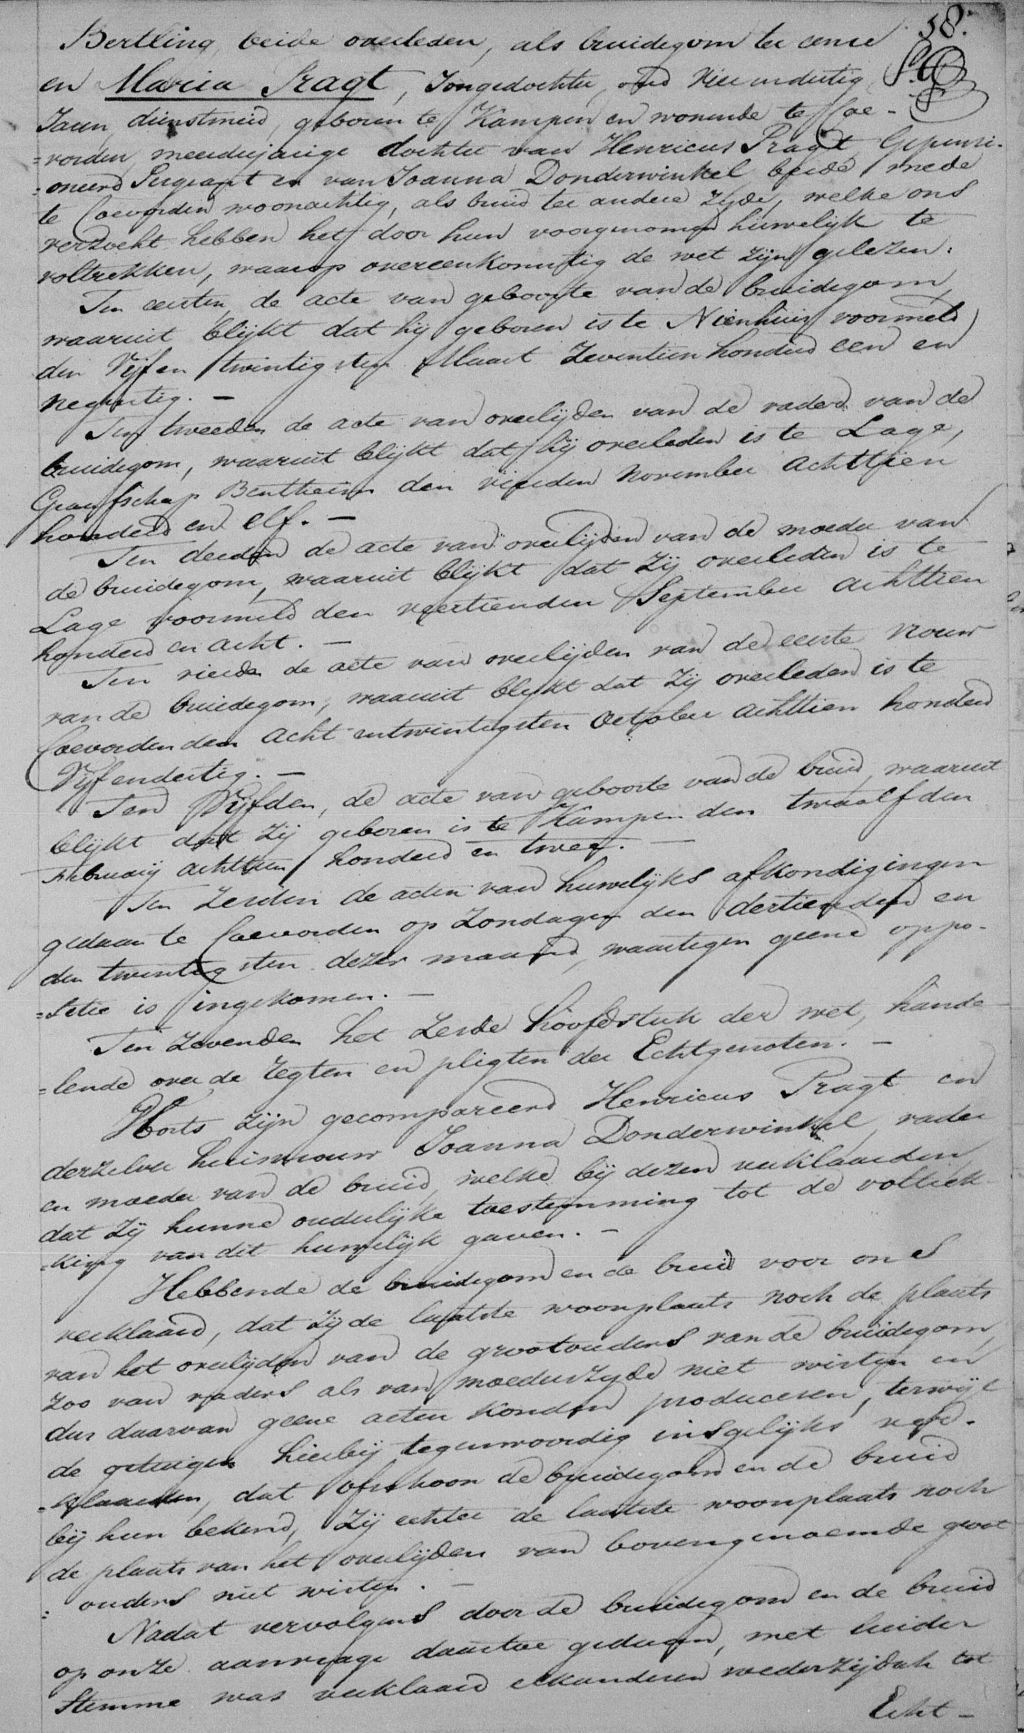 58.
Bertling, beide overleden, als bruidegom ter eenre
en Maria Pragt, Jongedochter, oud vier en dertig
Jaren, dienstmeid, geboren te Kampen en wonende te Coe-
=vorden, meerderjarige dochter van Henricus Pragt Gepensi-
=oneerd Sergeant en van Joanna Donderwinkel beide mede
te Coevorden woonachtig, als bruid ter andere zyde, welke ons
verzocht hebben het door hun voorgenomen huwelijk te
voltrekken, waarop overeenkomstig de wet zijn gelezen:
Ten eersten, de acte van geboorte van de bruidegom,
waaruit blijkt dat hij geboren is te Nienhuis voormeld
den Vijf en twintigsten Maart Zeventien honderd een en
negentig. –
Ten tweeden de acte van overlijden van de vader van de
bruidegom, waaruit blijkt dat hij overleden is te Lage,
Graafschap Bentheim den vierden November achttien
honderd en elf. –
Ten derden de acte van overlijden van de moeder van
de bruidegom, waaruit blijkt dat zij overleden is te
Lage voormeld den veertienden September achttien
honderd en acht. –
Ten vierden de acte van overlijden van de eerste vrouw
van de bruidegom, waaruit blijkt dat zij overleden is te
Coevorden den acht en twintigsten October achttien honderd
Vijfendertig. –
Ten Vijfden, de acte van geboorte van de bruid, waaruit
blijkt dat zij geboren is te Kampen den twaalfden
February achttien honderd en twee. –
Ten Zesden de acten van huwelijks afkondigingen
gedaan te Coevorden op Zondagen den dertienden en
den twintigsten dezer maand, waartegen geene oppo-
=sitie is ingekomen. –
Ten Zevenden het Zesde hoofdstuk der wet, hande
=lende over de regten en pligten der Echtgenoten. –
Voorts zijn gecompareerd Henricus Pragt en
derzelver huisvrouw Joanna Donderwinkel, vader
en moeder van de bruid, welke bij dezen verklaarden
dat zij hunne ouderlijke toestemming tot de voltrek
=king van dit huwelijk gaven. –
Hebbende de bruidegom en de bruid voor ons
verklaard, dat zij de laatste woonplaats noch de plaats
van het overlijden van de grootouders van de bruidegom,
zoo van vaders als van moederszyde niet wisten en
dus daarvan geene acten konden produceren, terwijl
de getuigen hierbij tegenwoordig insgelijks ver-
=klaarden, dat ofschoon de bruidegom en de bruid
bij hun bekend, zij echter de laatste woonplaats noch
de plaats van het overlijden van bovengenoemde groot
=ouders niet wisten. –
Nadat vervolgens door de bruidegom en de bruid
op onze aanvrage daartoe gedaan, met luider
Stemme was verklaard elkanderen wederzijdsch tot
Echt –